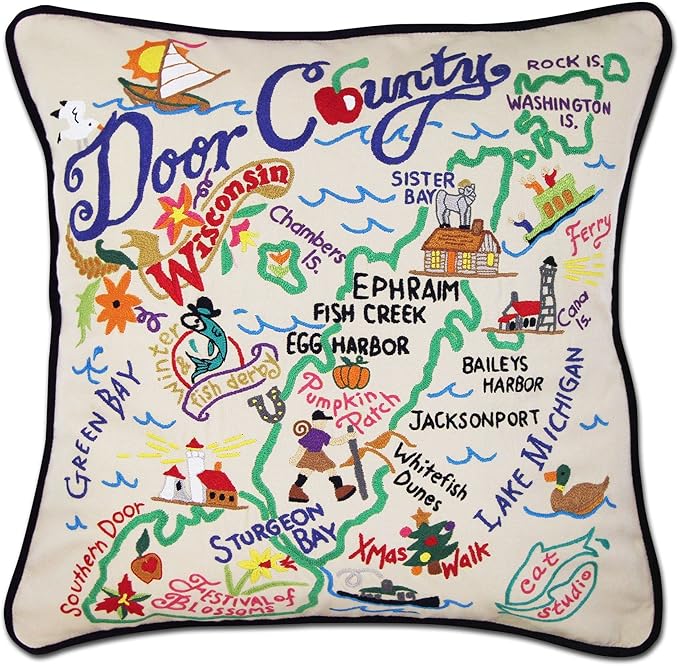 Door County
Wisconsin
ROCK IS.
WASHINGTON
IS.
SISTER
BAY
Ferry
Chambers
Is.
EPHRAIM
FISH CREEK
EGG HARBOR
Cana
Is.
Winter
fish derby
BAILEYS
HARBOR
Pumpkin
Patch
JACKSONPORT
GREEN BAY
LAKE MICHIGAN
Whitefish
Dunes
STURGEON
BAY
Xmas Walk
Southern Door
FESTIVAL of
BLOSSOMS
cat
studio